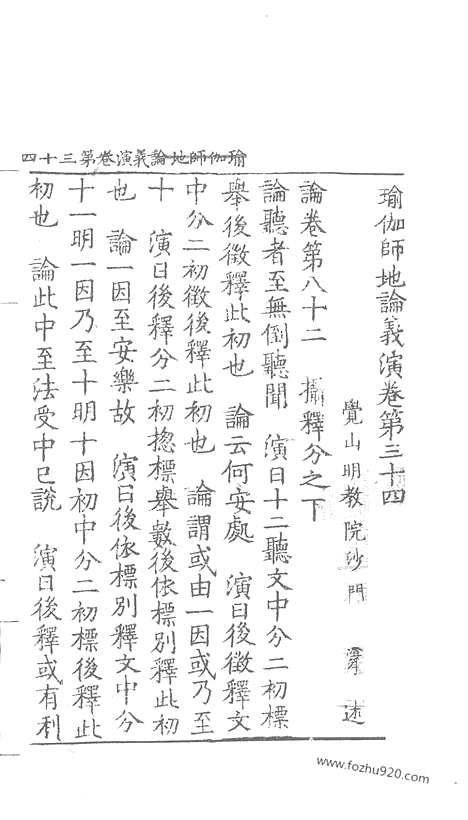 瑜伽師地論義演卷第三十四
覺山明教院沙門　述
論卷第八十二　攝釋分之下
論聽者至無倒聽聞　演曰十二聽文中分二初標
舉後徵釋此初也　論云何安處　演曰後徵釋文
中分二初徵後釋此初也　論謂或由一因或乃至
十　演曰後釋分二初揔標舉數後依標別釋此初
也　論一因至安樂故　演曰後依標別釋文中分
十一明一因乃至十明十因初中分二初標後釋此
初也　論此中至法受中已說　演曰後釋或有利
瑜伽師地論義演卷第三十四
www.fozhu920.com